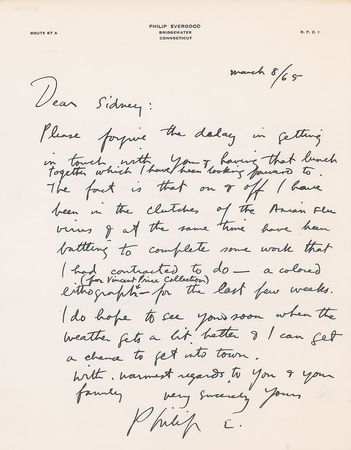 PHILIP EVERGOOD
ROUTE 67 A BRIDGEWATER R. F. D. 1
CONNECTICUT
march 8/65
Dear Sidney:
Please forgive the delay in getting
in touch with you & having that lunch
together which I have been looking forward to.
The fact is that on & off I have
been in the clutches of the Asian flu
virus & at the same time have been
battling to complete some work that
I had contracted to do — a colored
(for Vincent Price Collection)
lithograph — for the last few weeks.
I do hope to see you soon when the
weather gets a bit better & I can get
a chance to get into town.
With warmest regards to you & your
family very sincerely yours
Philip E.